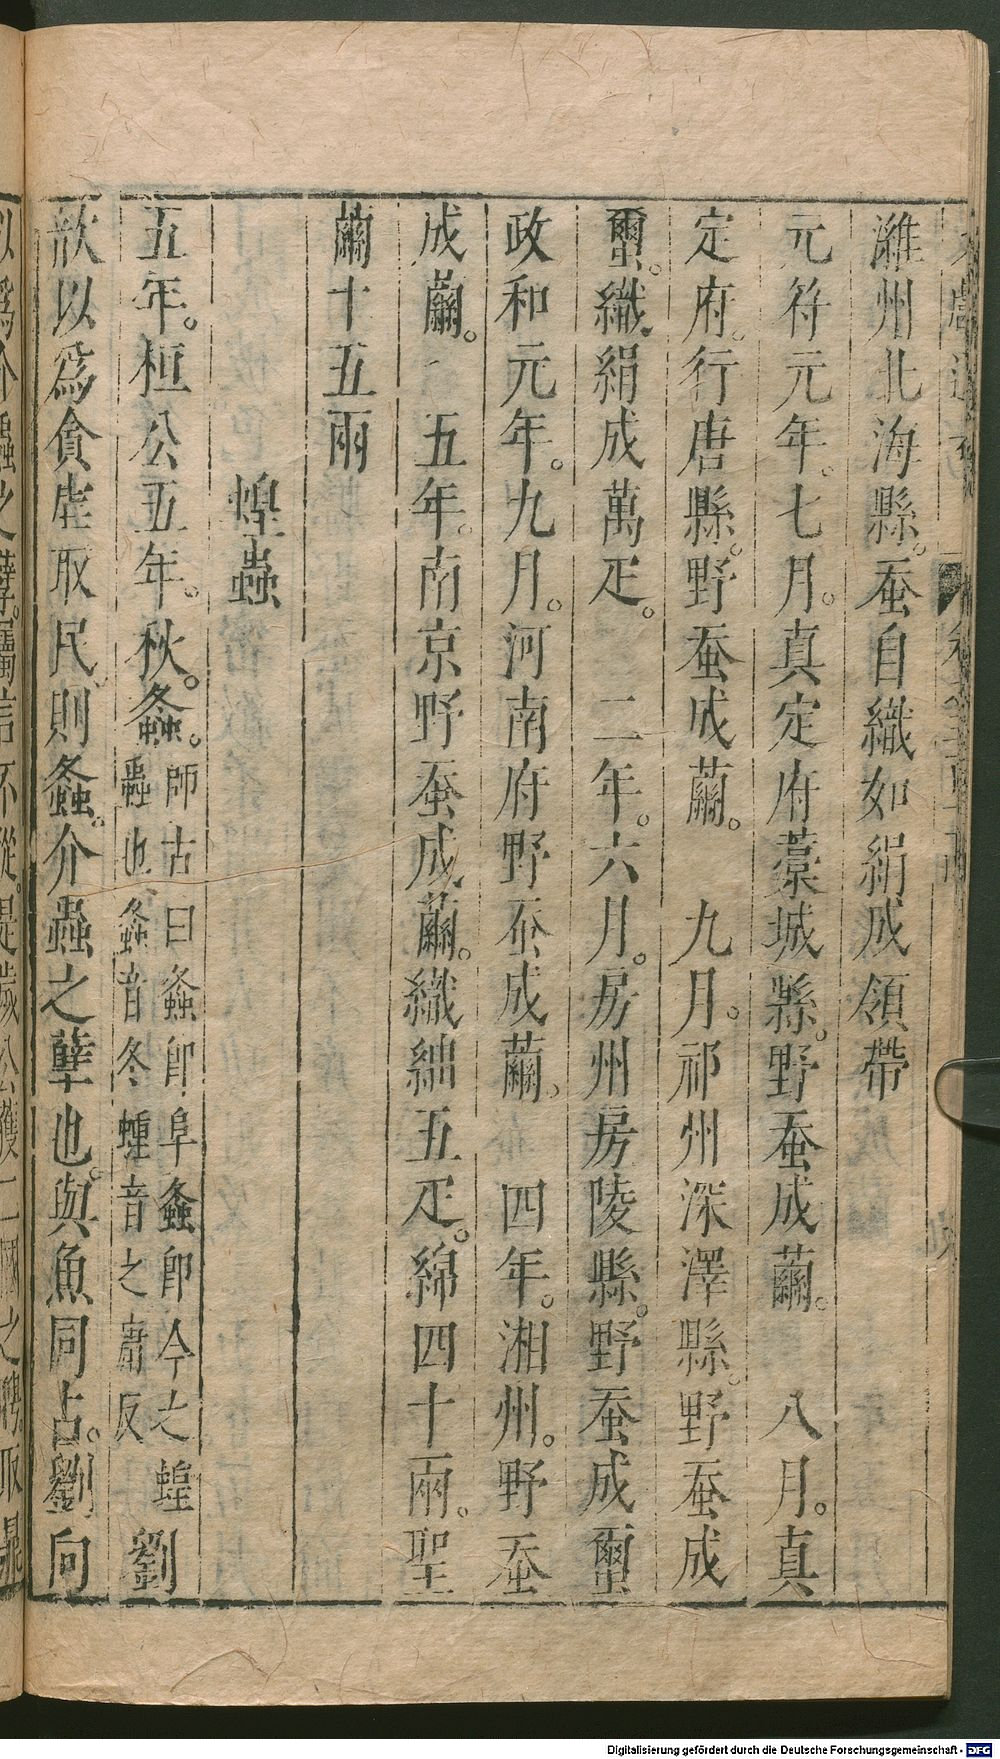 濰州北海縣。蚕自織如絹成領帶
元符元年。七月。真定府藁城縣。野蚕成繭。 八月。真
定府。行唐縣。野蚕成繭。 九月。祁州深澤縣。野蚕成
蠒。織絹成萬疋。 二年。六月。房州房陵縣。野蚕成蠒
政和元年。九月。河南府野蚕成繭。 四年。湘州。野蚕
成繭。 五年。南京野蚕成繭。織紬五疋。綿四十兩。聖
繭十五兩
蝗蟲
五年。桓公五年。秋。螽。師古曰螽卽阜螽卽今之蝗
蟲也螽音冬蝩音之庸反劉
歆以爲貪虐取民則螽。介蟲之孽也。與魚同占。劉向
以爲介蟲之孽。屬言不從。是歲公獲二國之聘。取鼎
Digitalisierung gefördert durch die Deutsche Forschungsgemeinschaft - DFG